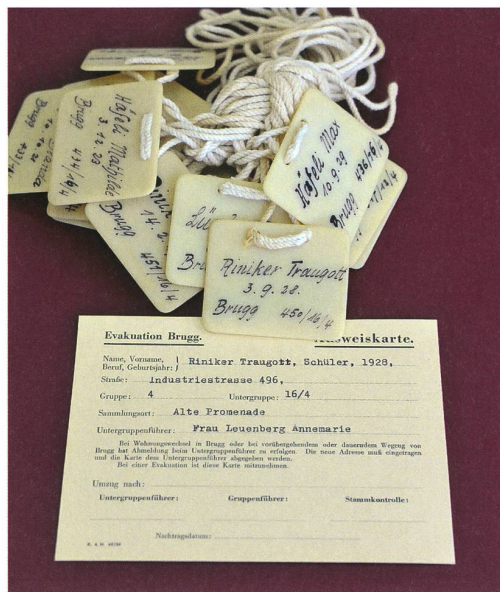 Häfeli Mathilde
3.12.23
Brugg 434/16/4
Brugg
Häfeli Max
10.9.29
Brugg 436/16/4
14.2.
Brugg
451/16/4
Lü
Br
Riniker Traugott
3.9.28.
Brugg 450/16/4
Evakuation Brugg. Ausweiskarte.
Name, Vorname,
Beruf, Geburtsjahr: } Riniker Traugott, Schüler, 1928,
Straße: Industriestrasse 496,
Gruppe: 4 Untergruppe: 16/4
Sammlungsort: Alte Promenade
Untergruppenführer: Frau Leuenberg Annemarie
Bei Wohnungswechsel in Brugg oder bei vorübergehendem oder dauerndem Wegzug von
Brugg hat Abmeldung beim Untergruppenführer zu erfolgen. Die neue Adresse muß eingetragen
und die Karte dem Untergruppenführer abgegeben werden.
Bei einer Evakuation ist diese Karte mitzunehmen.
Umzug nach:
Untergruppenführer: Gruppenführer: Stammkontrolle:
Nachtragsdatum: